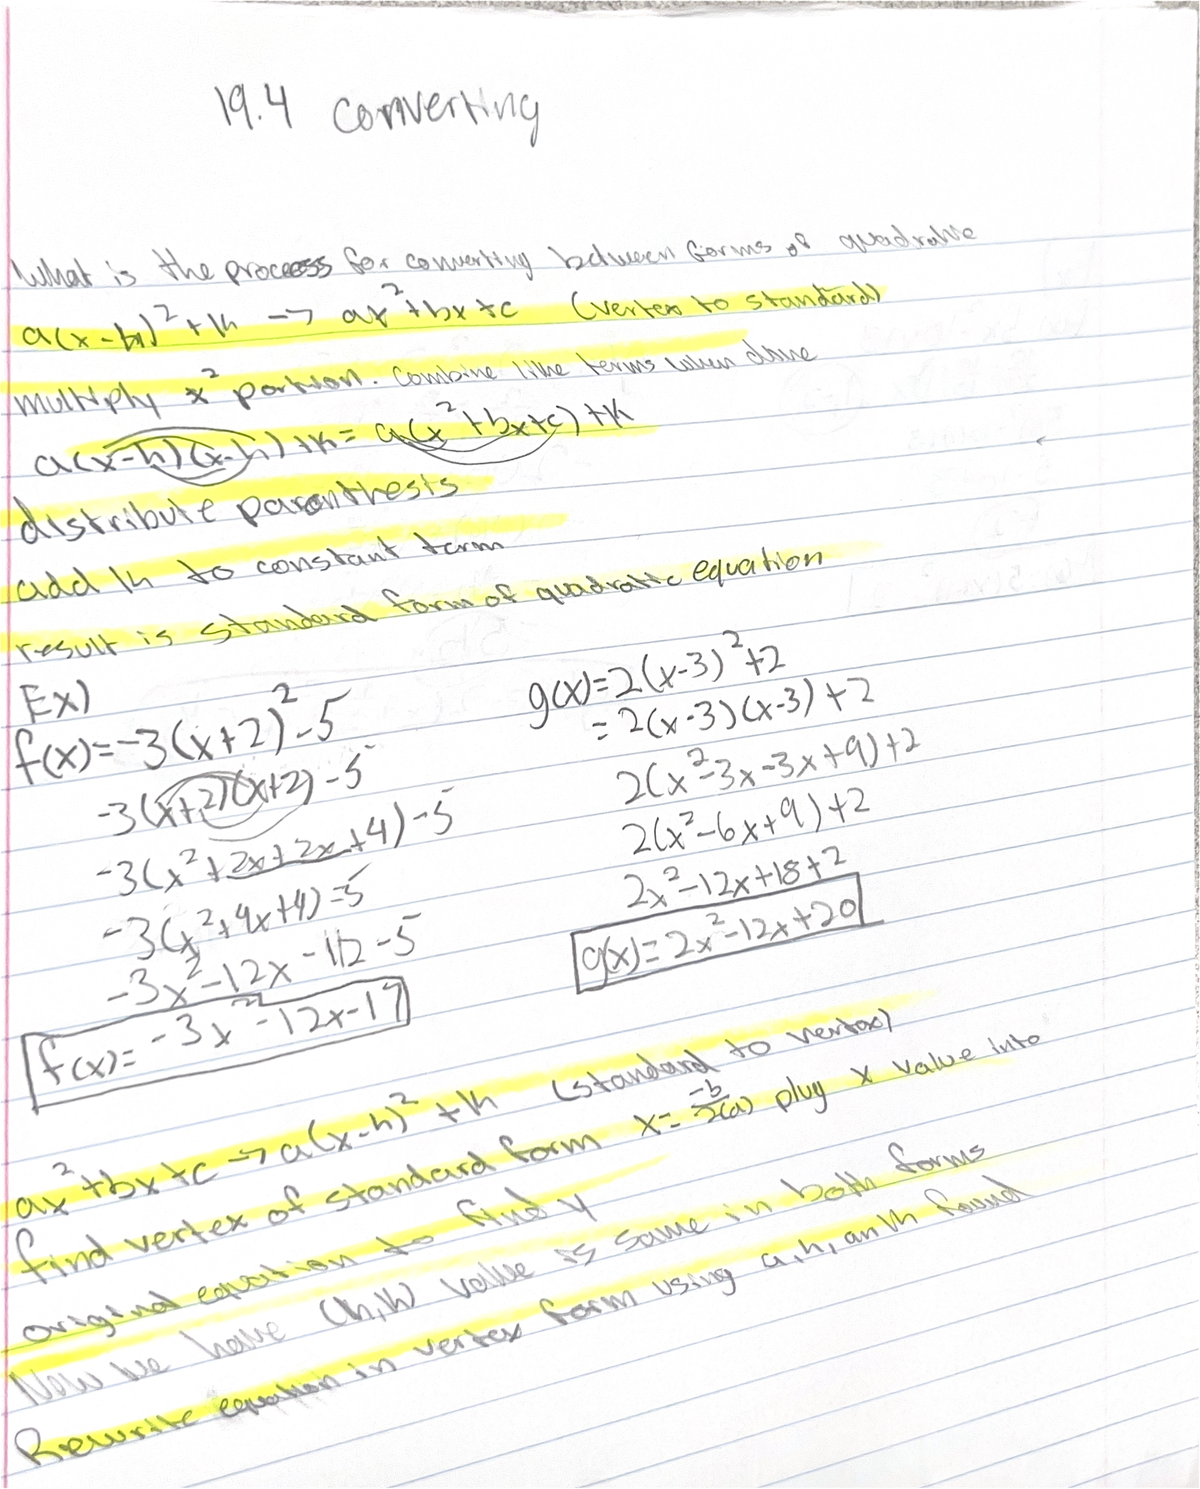 19.4 converting
What is the process for converting between forms of quadratic
a(x-h)²+k -> ax²+bx+c (vertex to standard)
multiply x² portion. Combine like terms when done
a(x-h)(x-h)+k = a(x²+bx+c)+k
distribute paranthesis
add k to constant term
result is standard form of quadratic equation
Ex)
f(x)=-3(x+2)²-5
-3(x+2)(x+2)-5
-3(x²+2x+2x+4)-5
-3(x²+4x+4)-5
-3x²-12x-12-5
f(x)=-3x²-12x-17
g(x)=2(x-3)²+2
=2(x-3)(x-3)+2
2(x²-3x-3x+9)+2
2(x²-6x+9)+2
2x²-12x+18+2
g(x)=2x²-12x+20
ax²+bx+c -> a(x-h)²+k (standard to vertex)
find vertex of standard form x=-b/2(a) plug x value into
original equation to find y
Now we have (h,k) value is same in both forms
Rewrite equation in vertex form using a,h,an k found